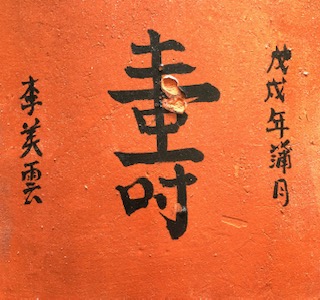 戊戌年蒲月
壽
李美雲